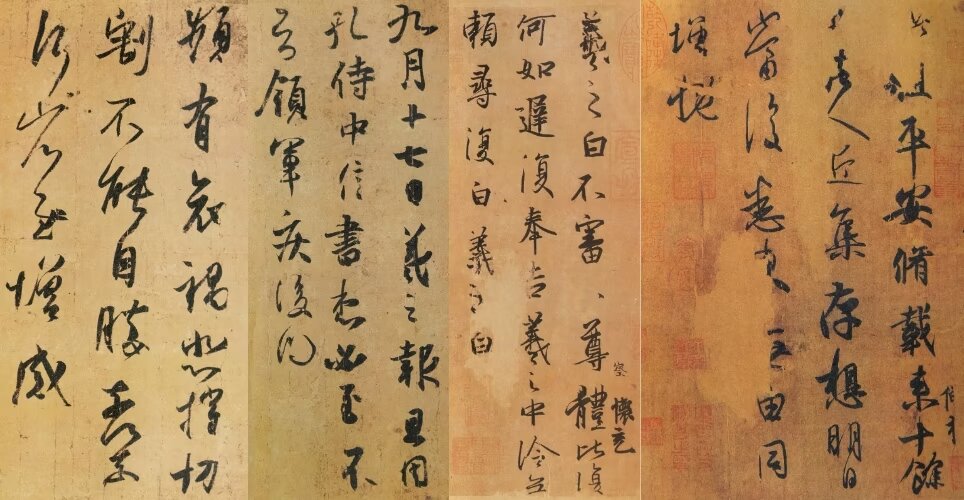 此粗平安脩載来十餘
日諸人近集存想明日
當復悉来無由同
增慨
羲之白不審尊體比復
察
懷充
何如遲復奉告羲之中冷無
賴尋復白羲之白
九月十七日羲之報且因
孔侍中信書想必至不
知領軍疾後問
頻有哀禍悲摧切
割不能自勝奈何奈
何省慰增感